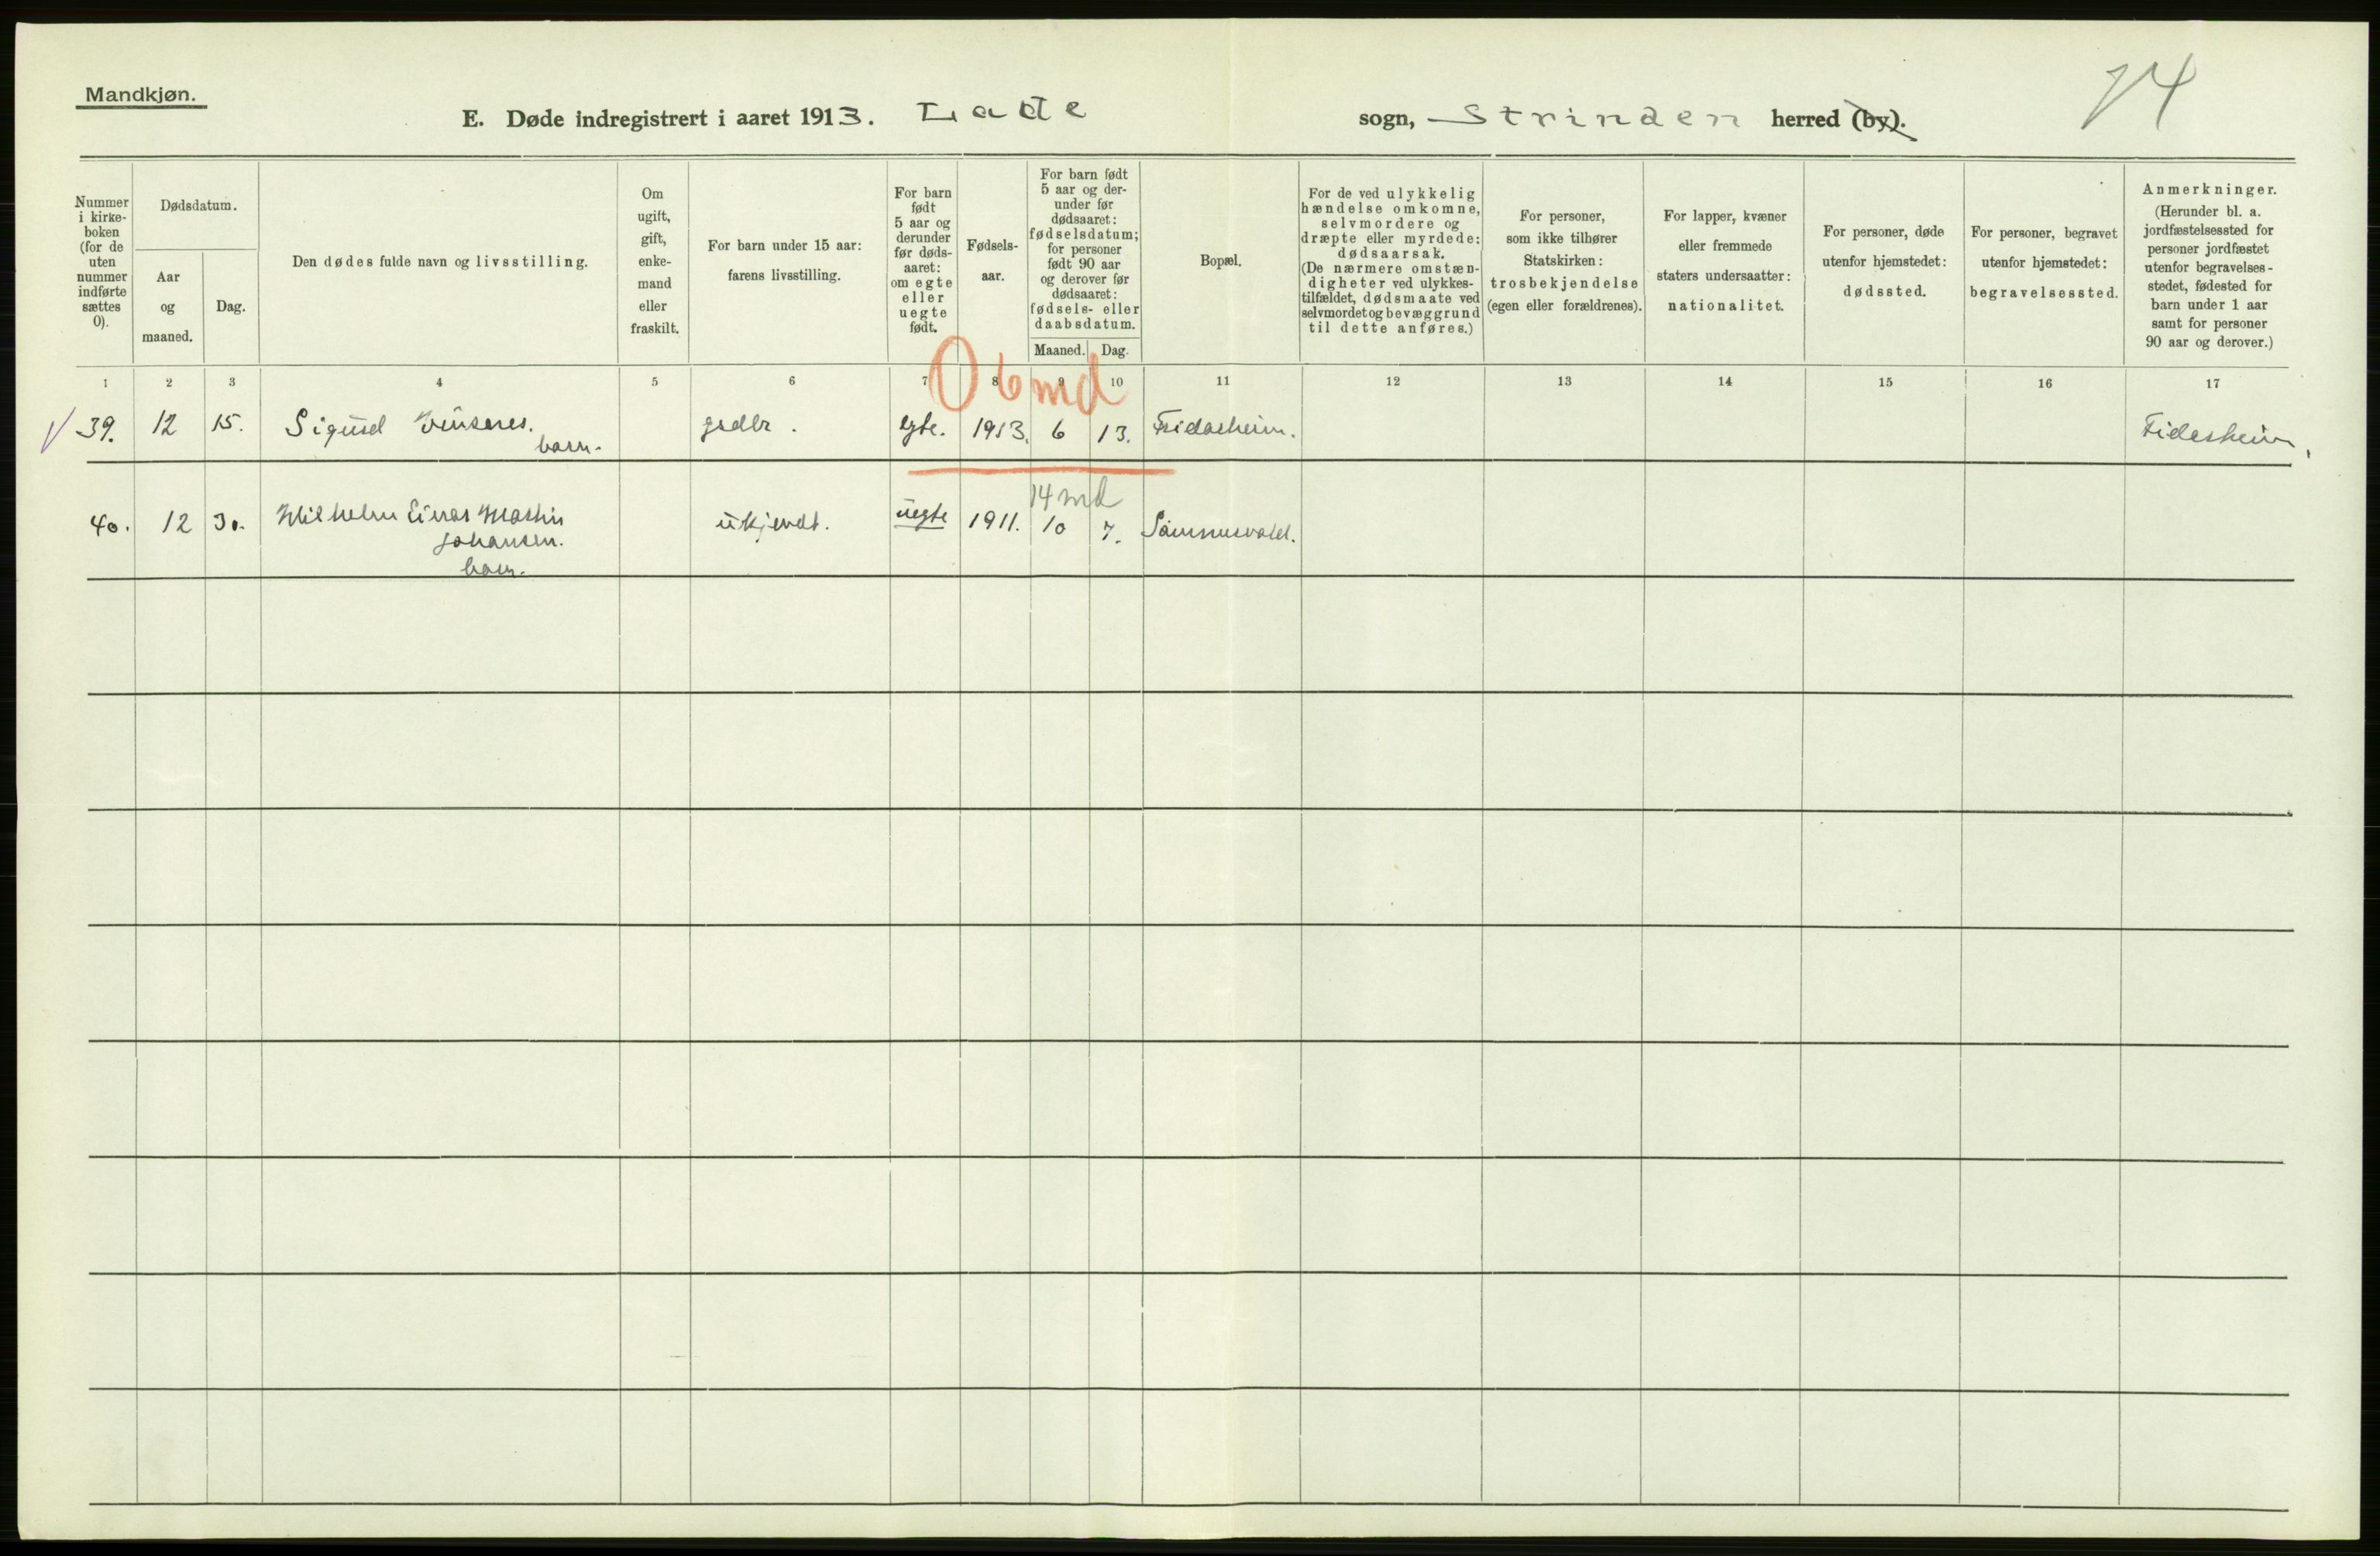 Mandkjøn.
74
E. Døde indregistrert i aaret 1913. Lade sogn, Strinden herred (by).
Nummer i kirke- boken (for de uten nummer indførte sættes 0).
Dødsdatum.
Aar og maaned.
Dag.
Den dødes fulde navn og livsstilling.
Om ugift, gift, enke- mand eller fraskilt.
For barn under 15 aar: farens livsstilling.
For barn født 5 aar og derunder før døds- aaret: om egte eller uegte født.
Fødsels- aar.
For barn født 5 aar og der- under før dødsaaret: fødselsdatum; for personer født 90 aar og derover før dødsaaret: fødsels- eller daabsdatum.
Maaned. Dag.
Bopæl.
For de ved ulykkelig hændelse omkomne, selvmordere og dræpte eller myrdede: dødsaarsak. (De nærmere omstæn- digheter ved ulykkes- tilfældet, dødsmaate ved selvmordet og bevæggrund til dette anføres.)
For personer, som ikke tilhører Statskirken: trosbekjendelse (egen eller forældrenes).
For lapper, kvæner eller fremmede staters undersaatter: nationalitet.
For personer, døde utenfor hjemstedet: dødssted.
For personer, begravet utenfor hjemstedet: begravelsessted.
Anmerkninger. (Herunder bl. a. jordfæstelsessted for personer jordfæstet utenfor begravelses- stedet, fødested for barn under 1 aar samt for personer 90 aar og derover.)
1 2 3 4 5 6 7 8 9 10 11 12 13 14 15 16 17
0 6 md
39. 12 15. Sigurd grdbr. egte. 1913. 6 13. Fridasheim. Fidesheim
barn.
14 md
40. 12 30. Wilhelm Einar Martin ukjendt. uegte 1911. 10 7.
Johansen.
barn.